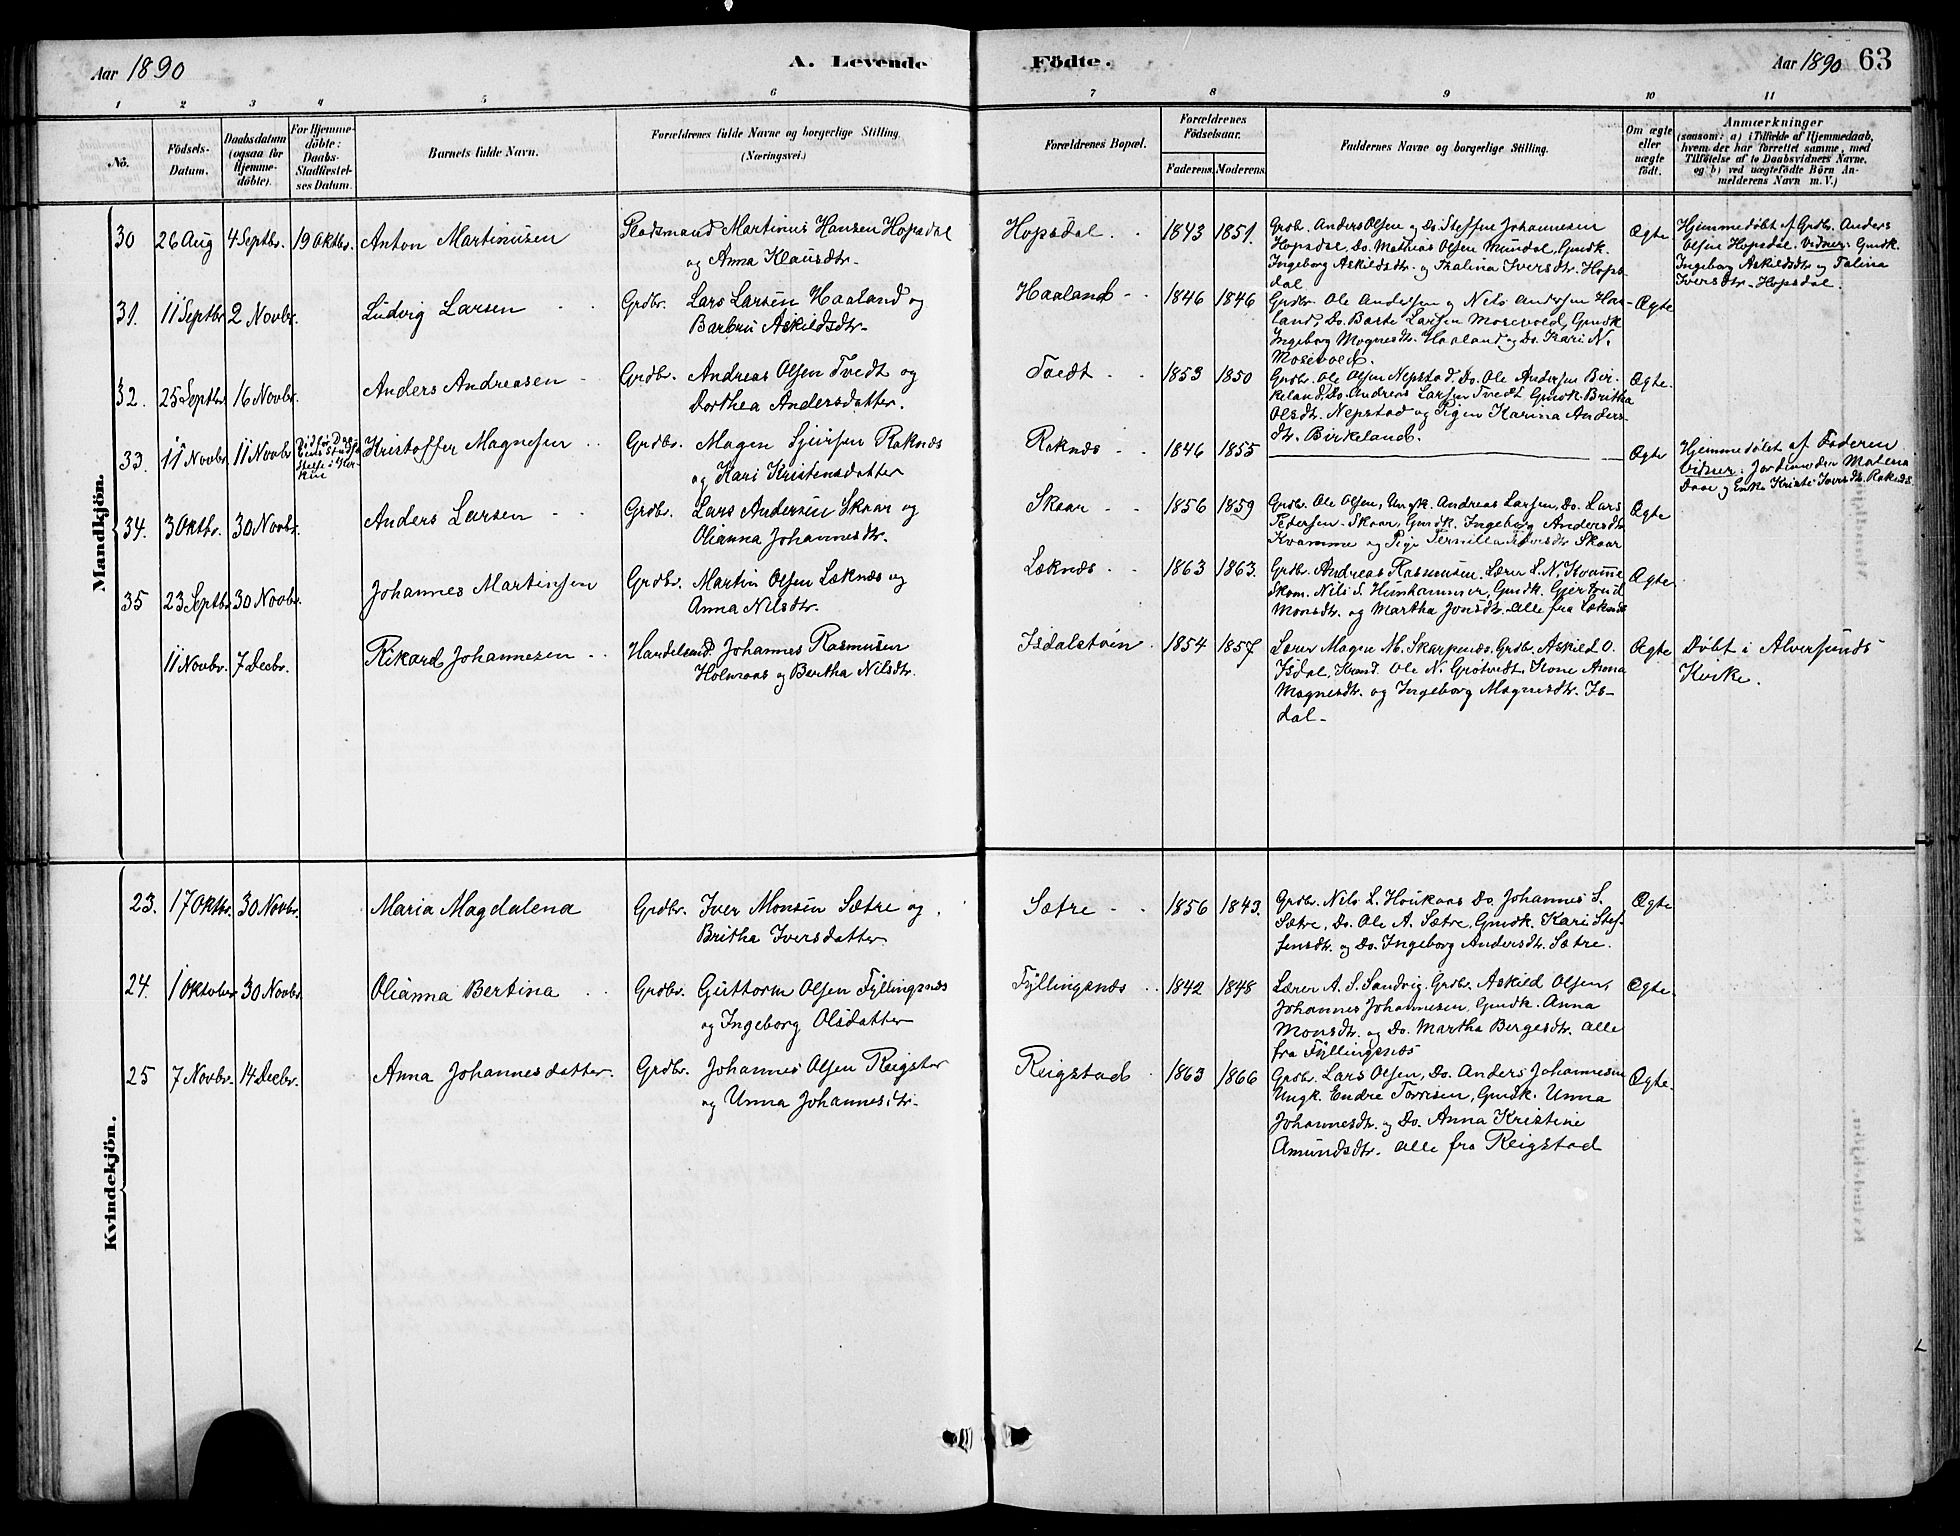 Aar 1890
A. Levende
Födte.
Aar 1890 63
1 2 3 4 5 6 7 8 9 10 11
No.
Födsels-
Datum.
Daabsdatum
(ogsaa for
Hjemme-
döbte).
For Hjemme-
döbte:
Daabs-
Stadfæstel-
ses Datum.
Barnets fulde Navn.
Forældrenes fulde Navne og borgerlige Stilling
(Næringsvei.)
Forældrenes Bopæl.
Forældrenes
Födselsaar.
Faderens. Moderens.
Faddernes Navne og borgerlige Stilling.
Om ægte
eller
uægte
födt.
Anmærkninger
(saasom: a) i Tilfælde af Hjemmedaab,
hvem der har forrettet samme, med
Tilföielse af to Daabsvidners Navne,
og b) ved uægtefödte Börn An-
melderens Navn m. V.)
Mandkjön.
30 26 Aug 4 Septbr. 19 Oktbr. Anton Martinusen
Pladsmand Martinus Hansen Hopsdal
og Anna Klausdtr.
Hopsdal. 1843 1851.
Grdbr. Anders Olsen og Do. Steffen Johannesen
Hopsdal, Do. Mathias Olsen Mundal, Gmdk.
Ingeborg Askildsdtr. og Thalina Iversdtr. Hops-
dal
Ægte
Hjemmedøbt af Grdbr. Anders
Olsen Hopsdal. Vidner: Gmdk.
Ingeborg Askildsdtr og Talina
Iversdtr. Hopsdal.
31. 11 Septbr 2 Novbr. Ludvig Larsen
Grdbr. Lars Larsen Haaland og
Barbru Askildsdtr.
Haaland 1846 1846
Grdbr. Ole Andersen og Nels Andersen Haa-
land, Do. Barte Larsen Mosevold, Gmdk
Ingeborg Mognesdtr. Haaland og Do. Kari N.
Mosevold.
Ægte
32. 25 Septbr 16 Novbr. Anders Andreasen
Grdbr. Andreas Olsen Tvedt og
Dorthea Andersdatter.
Tvedt 1853 1850
Grdbr. Ole Olsen Nepstad, Do. Ole Andersen Bir-
keland, Do. Andreas Larsen Tvedt Gmdk. Britha
Olsdtr. Nepstad og Pigen Karina Anders-
dtr. Birkeland.
Ægte.
33. 11 Novbr. 11 Novbr Kristoffer Magnesen
Grdbr. Magne Sjursen Raknæs
og Kari Kristensdatter
Raknæs 1846 1855
Ægte
Hjemmedøbt af Faderen
Vidner: Jordmoder Matena
Daae og Enke Kristi Iversdtr. Raknæs.
34. 3 Oktbr. 30 Novbr. Anders Larsen
Grdbr. Lars Andersen Skaar og
Olianna Johannesdtr.
Skaar 1856 1859
Grdbr. Ole Olsen, Ungk. Andreas Larsen, Do. Lars
Pedersen Skaar, Gmdk. Ingeborg Andersdtr
Kvamme og Pige Pernilla Iversdtr Skaar
Ægte
35 23 Septbr 30 Novbr. Johannes Martinsen
Grdbr. Martin Olsen Læknæs og
Anna Nilsdtr.
Læknæs 1863 1863.
Grdbr. Andreas Rasmusen. Lærer L. N. Kvamme
Skom. Nils S. Hunhammer, Gmdk. Gjertrud
Monsdtr. og Martha Jonsdtr. alle fra Læknæs
Ægte
11 Novbr. 7 Decbr. Rikard Johannesen
Handelsmd. Johannes Rasmusen
Holmaas og Bertha Nilsdtr.
Isdalstøen 1854 1857
Lærer Magne M. Skarpenæs, Grdbr. Askild O.
Isdal, Ole N. Grøtvedt, Kone Anna
Magnesdtr. og Ingeborg Magnesdtr. Is-
dal.
Ægte
Døbt i Alversunds
Kirke.
Kvindekjön.
23. 17 Oktbr. 30 Novbr. Maria Magdalena
Grdbr. Iver Monsen Sætre og
Britha Iversdatter
Sætre 1856 1843.
Grdbr. Nels L. Houkaas Do. Johannes S.
Sætre, Do. Ole A. Sætre, Gmdk. Kari Stef-
fensdtr. og Do. Ingeborg Andersdtr. Sætre.
Ægte
24. 1 Oktober 30 Novbr. Olianna Bertina
Grdbr. Guttorm Olsen Fyllingsnæs
og Ingeborg Olsdatter
Fyllingsnæs 1842 1848
Lærer A. S. Sandvig, Grdbr. Askild Olsen,
Johannes Johannesen, Gmdk. Anna
Monsdtr. og Do. Martha Bergesdtr. alle
fra Fyllingsnæs
Ægte.
25 7 Novbr. 14 Decbr. Anna Johannesdatter.
Grdbr. Johannes Olsen Reigstad
og Unna Johannesdtr.
Reigstad 1863 1866
Grdbr. Lars Olsen, Do. Anders Johannesen
Ungk. Endre Torrisen, Gmdk. Unna
Johannesdtr. og Do. Anna Kristine
Amundsdtr. alle fra Reigstad
Ægte.